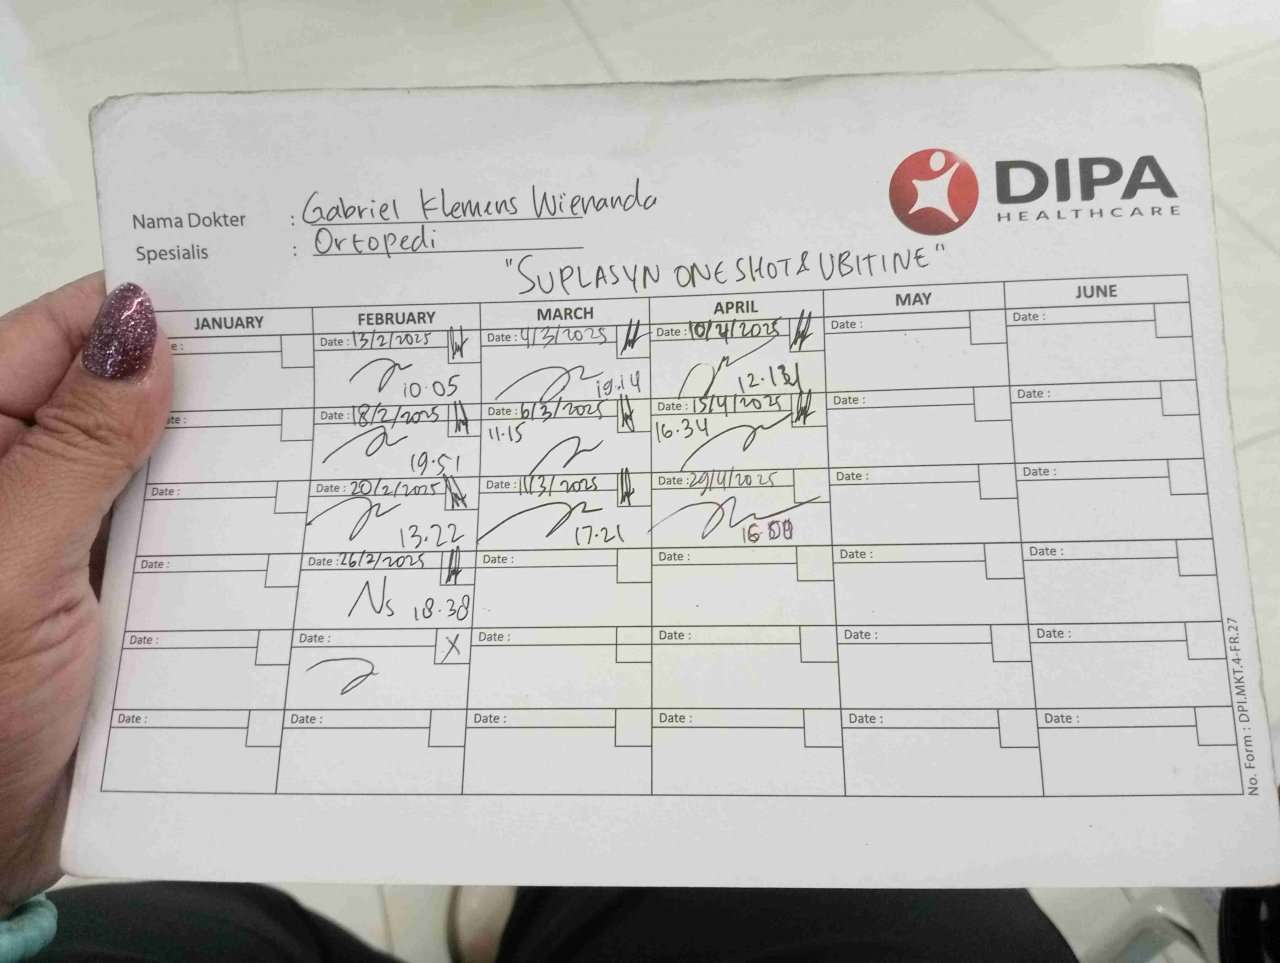 DIPA
HEALTHCARE
Nama Dokter : Gabriel Klemens Wienanda
Spesialis : Ortopedi
"SUPLASYN ONE SHOT & UBITINE"
JANUARY FEBRUARY MARCH APRIL MAY JUNE
Date : 13/2/2025 Date : 4/3/2025 Date : 10/4/2025 Date : Date :
10.05 19.14 12.13
Date : 18/2/2025 Date : 6/3/2025 Date : 15/4/2025 Date : Date :
19.51 11.15 16.34
Date : Date : 20/2/2025 Date : 11/3/2025 Date : 29/4/2025 Date : Date :
13.22 17.21 16.00
Date : Date : 26/2/2025 Date : Date : Date : Date :
Ns 18.38
Date : Date : X Date : Date : Date : Date :
Date : Date : Date : Date : Date : Date :
No. Form : DPI.MKT.4-FR.27